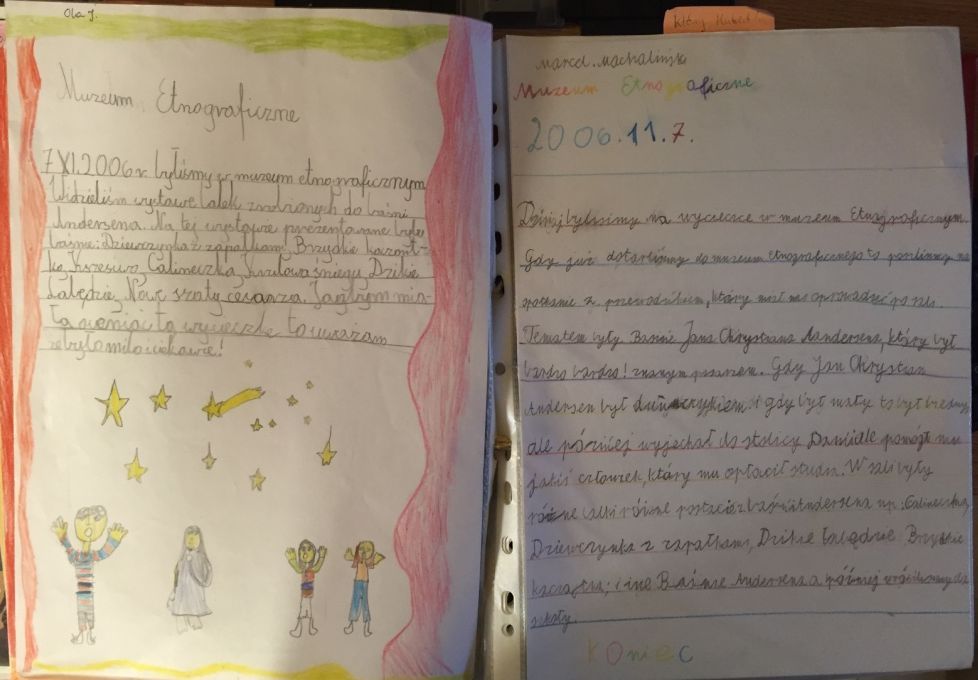 Ola J.
Muzeum Etnograficzne
7 XI.2006r. byliśmy w muzeum etnograficznym
Widzieliśm wystawę lalek zrobionych do baśni
Andersena. Na tej wystawie prezentowane były
baśnie: Dziewczynka z zapałkami, Brzydkie kacząt-
ko, Krzesiwo, Calineczka, Królowa śniegu, Dzikie
Łabędzie, Nowe szaty cesarza. Jagbym mia-
ła ocenjać tą wycieczkę to uważam
że było miło i ciekawie!
Który Hubert
Marcel. Machaliński
Muzeum Etnograficzne
2006.11.7.
Dzisiaj byliśmy na wycieczce w muzeum Etnograficznym.
Gdy już dotarliśmy do muzeum etnograficznego to poszliśmy na
spotkanie z przewodnikiem, który miał nas oprowadzić po sali.
Tematem były Baśnie Jana Chrystiana Aandersena, który był
bardzo bardzo! znanym pisarzem. Gdy Jan Chrystian
Andersen był i gdy był mały to był biedny,
ale później wyjechał do stolicy Danii pomógł mu
jakiś człowiek, który mu opłacił studia. W sali były
różne lalki różne postacie z baśni Andersena np: Calineczka,
Dziewczynka z zapałkami, Dzikie łabędzie Brzydkie
kaczątka; i ine Baśnie Andersena a później wróciliśmy do
szkoły.
KOniec